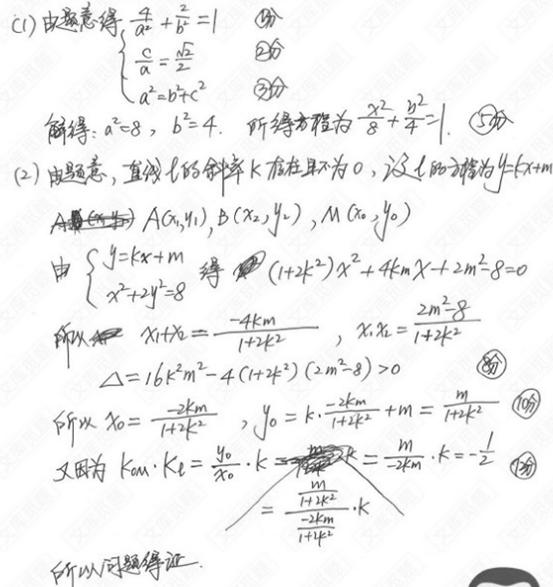 (1) 由题意得 4/a² + 2/b² = 1 ①分
c/a = √2/2 ②分
a² = b² + c² ③分
解得：a² = 8，b² = 4. 所得方程为 x²/8 + y²/4 = 1. ⑤分
(2) 由题意，直线l的斜率k存在且不为0，设l的方程为y=kx+m
A(x₁,y₁), B(x₂,y₂), M(x₀,y₀)
由 { y=kx+m
x²+2y²=8 得 (1+2k²)x²+4kmx+2m²-8=0
所以 x₁+x₂ = -4km/(1+2k²) , x₁x₂ = (2m²-8)/(1+2k²)
△=16k²m²-4(1+2k²)(2m²-8)>0 ⑧分
所以 x₀ = -2km/(1+2k²) , y₀ = k·-2km/(1+2k²) + m = m/(1+2k²) ⑩分
又因为 k_OM·k_l = y₀/x₀·k = m/-2km·k = -1/2 ⑫分
= (m/(1+2k²))/(-2km/(1+2k²))·k
所以问题得证.